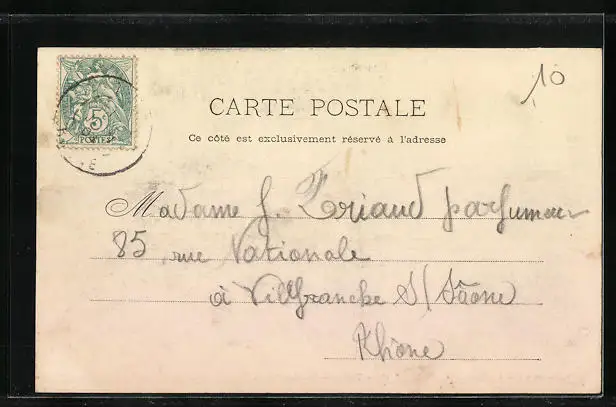 10
5
POSTES
CARTE POSTALE
Ce côté est exclusivement réservé à l'adresse
Madame J. Briaud parfumeur
85, rue Nationale
à Villfranche S/Saône
Rhône